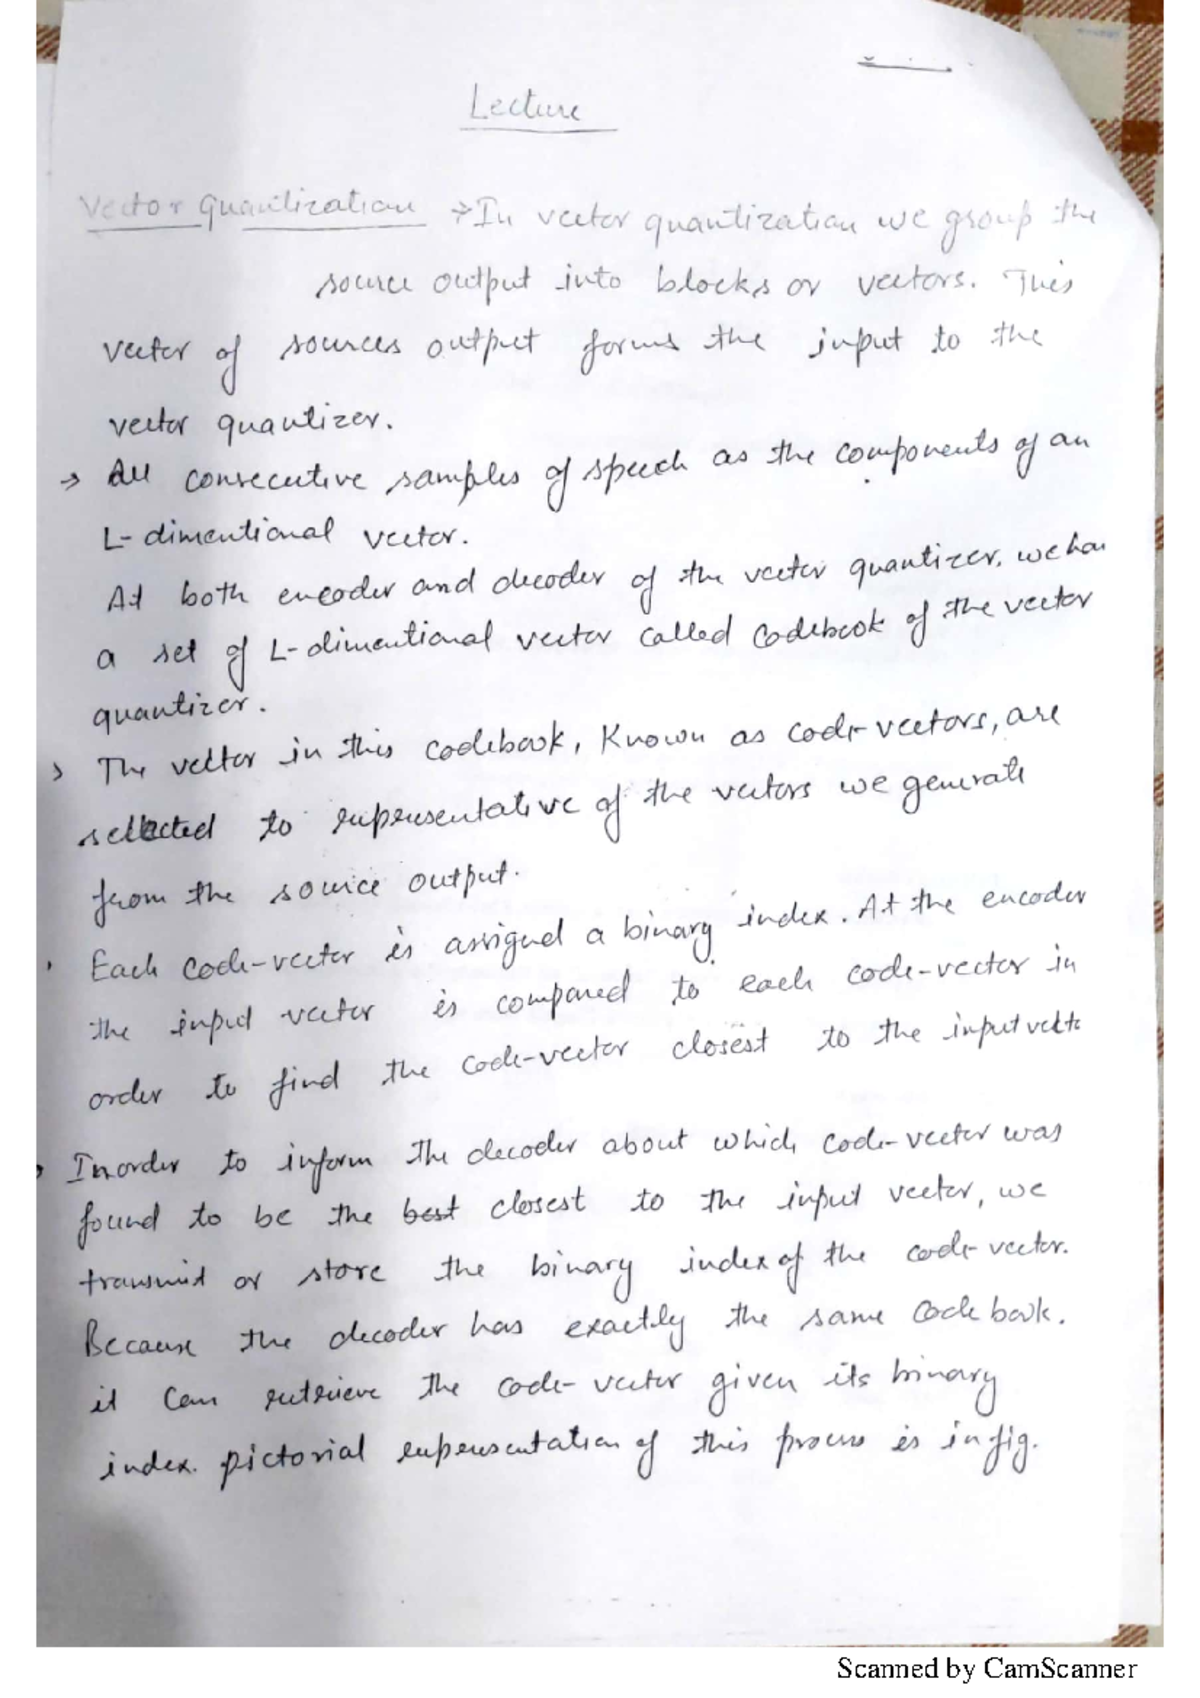 Lecture
Vector Quantization → In vector quantization we group the
source output into blocks or vectors. This
vector of sources output forms the input to the
vector quantizer.
→ All consecutive samples of speech as the components of an
L-dimentional vector.
At both encoder and decoder of the vector quantizer, we hav
a set of L-dimentional vector called Codebook of the vector
quantizer.
> The vector in this codebook, Known as code-vectors, are
selected to representative of the vectors we generate
from the source output.
Each code-vector is assigned a binary index. At the encoder
the input vector is compared to each code-vector in
order to find the code-vector closest to the input vecto
Inorder to inform the decoder about which code-vector was
found to be the best closest to the input vector, we
transmit or store the binary index of the code-vector.
Because the decoder has exactly the same Code book.
it Can retrieve the code-vector given its binary
index. pictorial representation of this process is in fig.
Scanned by CamScanner